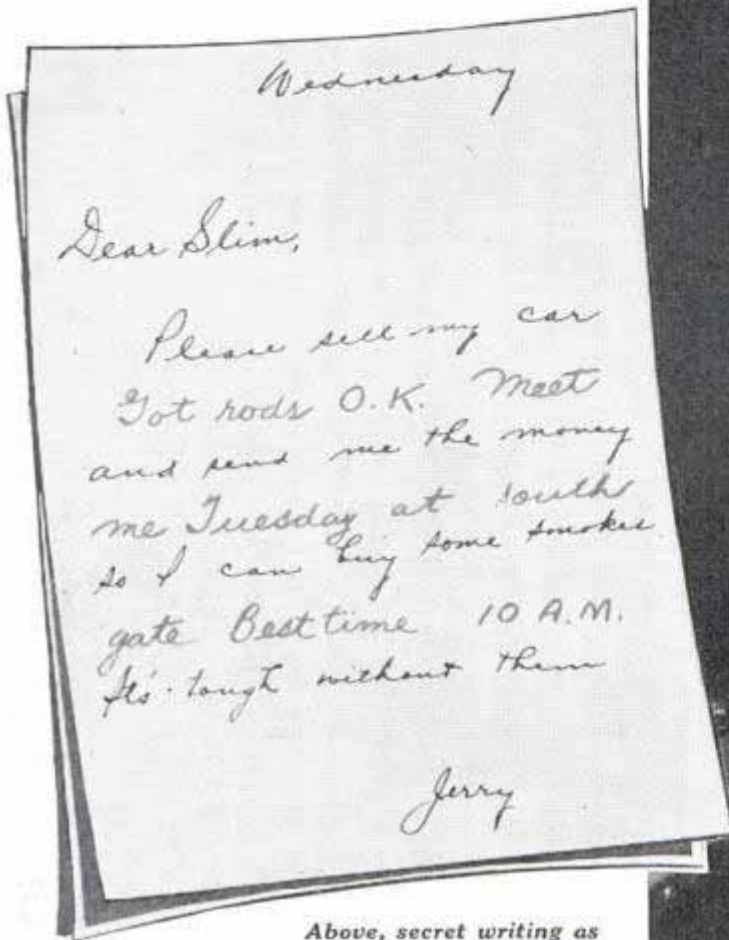 Wednesday
Dear Slim,
Please sell my car
Got rods O.K. Meet
and send me the money
me Tuesday at South
so I can buy some smokes.
gate Best time 10 A.M.
It's tough without them
Jerry
Above, secret writing as